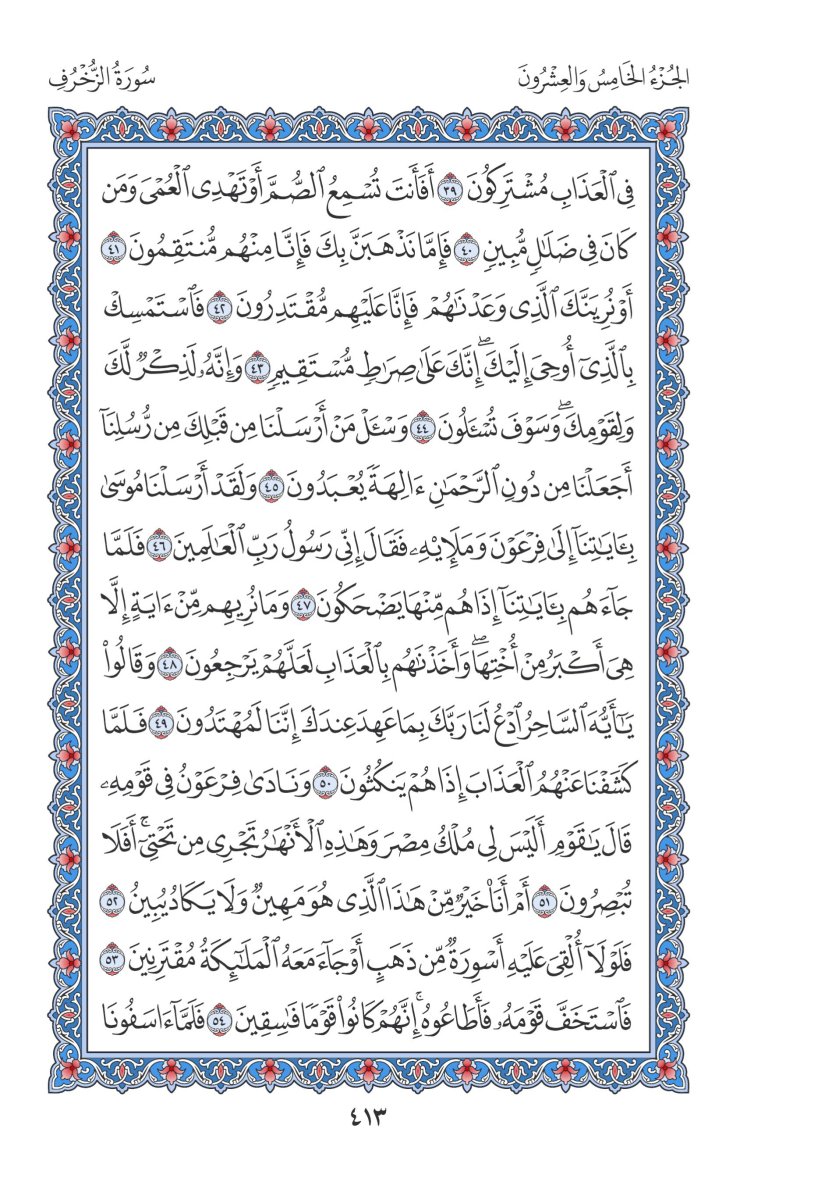 الجُزْءُ الخَامِسُ وَالعِشْرُونَ
سُورَةُ الزُّخْرُفِ
فِي ٱلْعَذَابِ مُشْتَرِكُونَ ٣٩ أَفَأَنتَ تُسْمِعُ ٱلصُّمَّ أَوْ تَهْدِي ٱلْعُمْيَ وَمَن
كَانَ فِي ضَلَٰلٍ مُّبِينٍ ٤٠ فَإِمَّا نَذْهَبَنَّ بِكَ فَإِنَّا مِنْهُم مُّنتَقِمُونَ ٤١
أَوْ نُرِيَنَّكَ ٱلَّذِي وَعَدْنَٰهُمْ فَإِنَّا عَلَيْهِم مُّقْتَدِرُونَ ٤٢ فَٱسْتَمْسِكْ
بِٱلَّذِيٓ أُوحِيَ إِلَيْكَۖ إِنَّكَ عَلَىٰ صِرَٰطٍ مُّسْتَقِيمٍ ٤٣ وَإِنَّهُۥ لَذِكْرٌ لَّكَ
وَلِقَوْمِكَۖ وَسَوْفَ تُسْـَٔلُونَ ٤٤ وَسْـَٔلْ مَنْ أَرْسَلْنَا مِن قَبْلِكَ مِن رُّسُلِنَآ
أَجَعَلْنَا مِن دُونِ ٱلرَّحْمَٰنِ ءَالِهَةً يُعْبَدُونَ ٤٥ وَلَقَدْ أَرْسَلْنَا مُوسَىٰ
بِـَٔايَٰتِنَآ إِلَىٰ فِرْعَوْنَ وَمَلَإِيْهِۦ فَقَالَ إِنِّي رَسُولُ رَبِّ ٱلْعَٰلَمِينَ ٤٦ فَلَمَّا
جَآءَهُم بِـَٔايَٰتِنَآ إِذَا هُم مِّنْهَا يَضْحَكُونَ ٤٧ وَمَا نُرِيهِم مِّنْ ءَايَةٍ إِلَّا
هِيَ أَكْبَرُ مِنْ أُخْتِهَاۖ وَأَخَذْنَٰهُم بِٱلْعَذَابِ لَعَلَّهُمْ يَرْجِعُونَ ٤٨ وَقَالُوا۟
يَٰٓأَيُّهَ ٱلسَّاحِرُ ٱدْعُ لَنَا رَبَّكَ بِمَا عَهِدَ عِندَكَ إِنَّنَا لَمُهْتَدُونَ ٤٩ فَلَمَّا
كَشَفْنَا عَنْهُمُ ٱلْعَذَابَ إِذَا هُمْ يَنكُثُونَ ٥٠ وَنَادَىٰ فِرْعَوْنُ فِي قَوْمِهِۦ
قَالَ يَٰقَوْمِ أَلَيْسَ لِي مُلْكُ مِصْرَ وَهَٰذِهِ ٱلْأَنْهَٰرُ تَجْرِي مِن تَحْتِيٓۚ أَفَلَا
تُبْصِرُونَ ٥١ أَمْ أَنَا۠ خَيْرٌ مِّنْ هَٰذَا ٱلَّذِي هُوَ مَهِينٌ وَلَا يَكَادُ يُبِينُ ٥٢
فَلَوْلَآ أُلْقِيَ عَلَيْهِ أَسْوِرَةٌ مِّن ذَهَبٍ أَوْ جَآءَ مَعَهُ ٱلْمَلَٰٓئِكَةُ مُقْتَرِنِينَ ٥٣
فَٱسْتَخَفَّ قَوْمَهُۥ فَأَطَاعُوهُۚ إِنَّهُمْ كَانُوا۟ قَوْمًا فَٰسِقِينَ ٥٤ فَلَمَّآ ءَاسَفُونَا
٤١٣